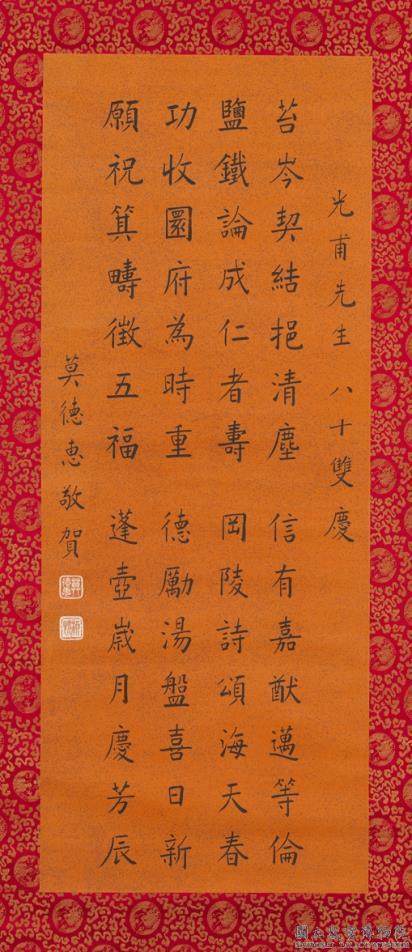 光甫先生八十雙慶
苔岑契結挹清塵 信有嘉猷邁等倫
鹽鐵論成仁者壽 岡陵詩頌海天春
功收圜府為時重 德勵湯盤喜日新
願祝箕疇徵五福 蓬壺歲月慶芳辰
莫德惠敬賀
國立故宮博物院